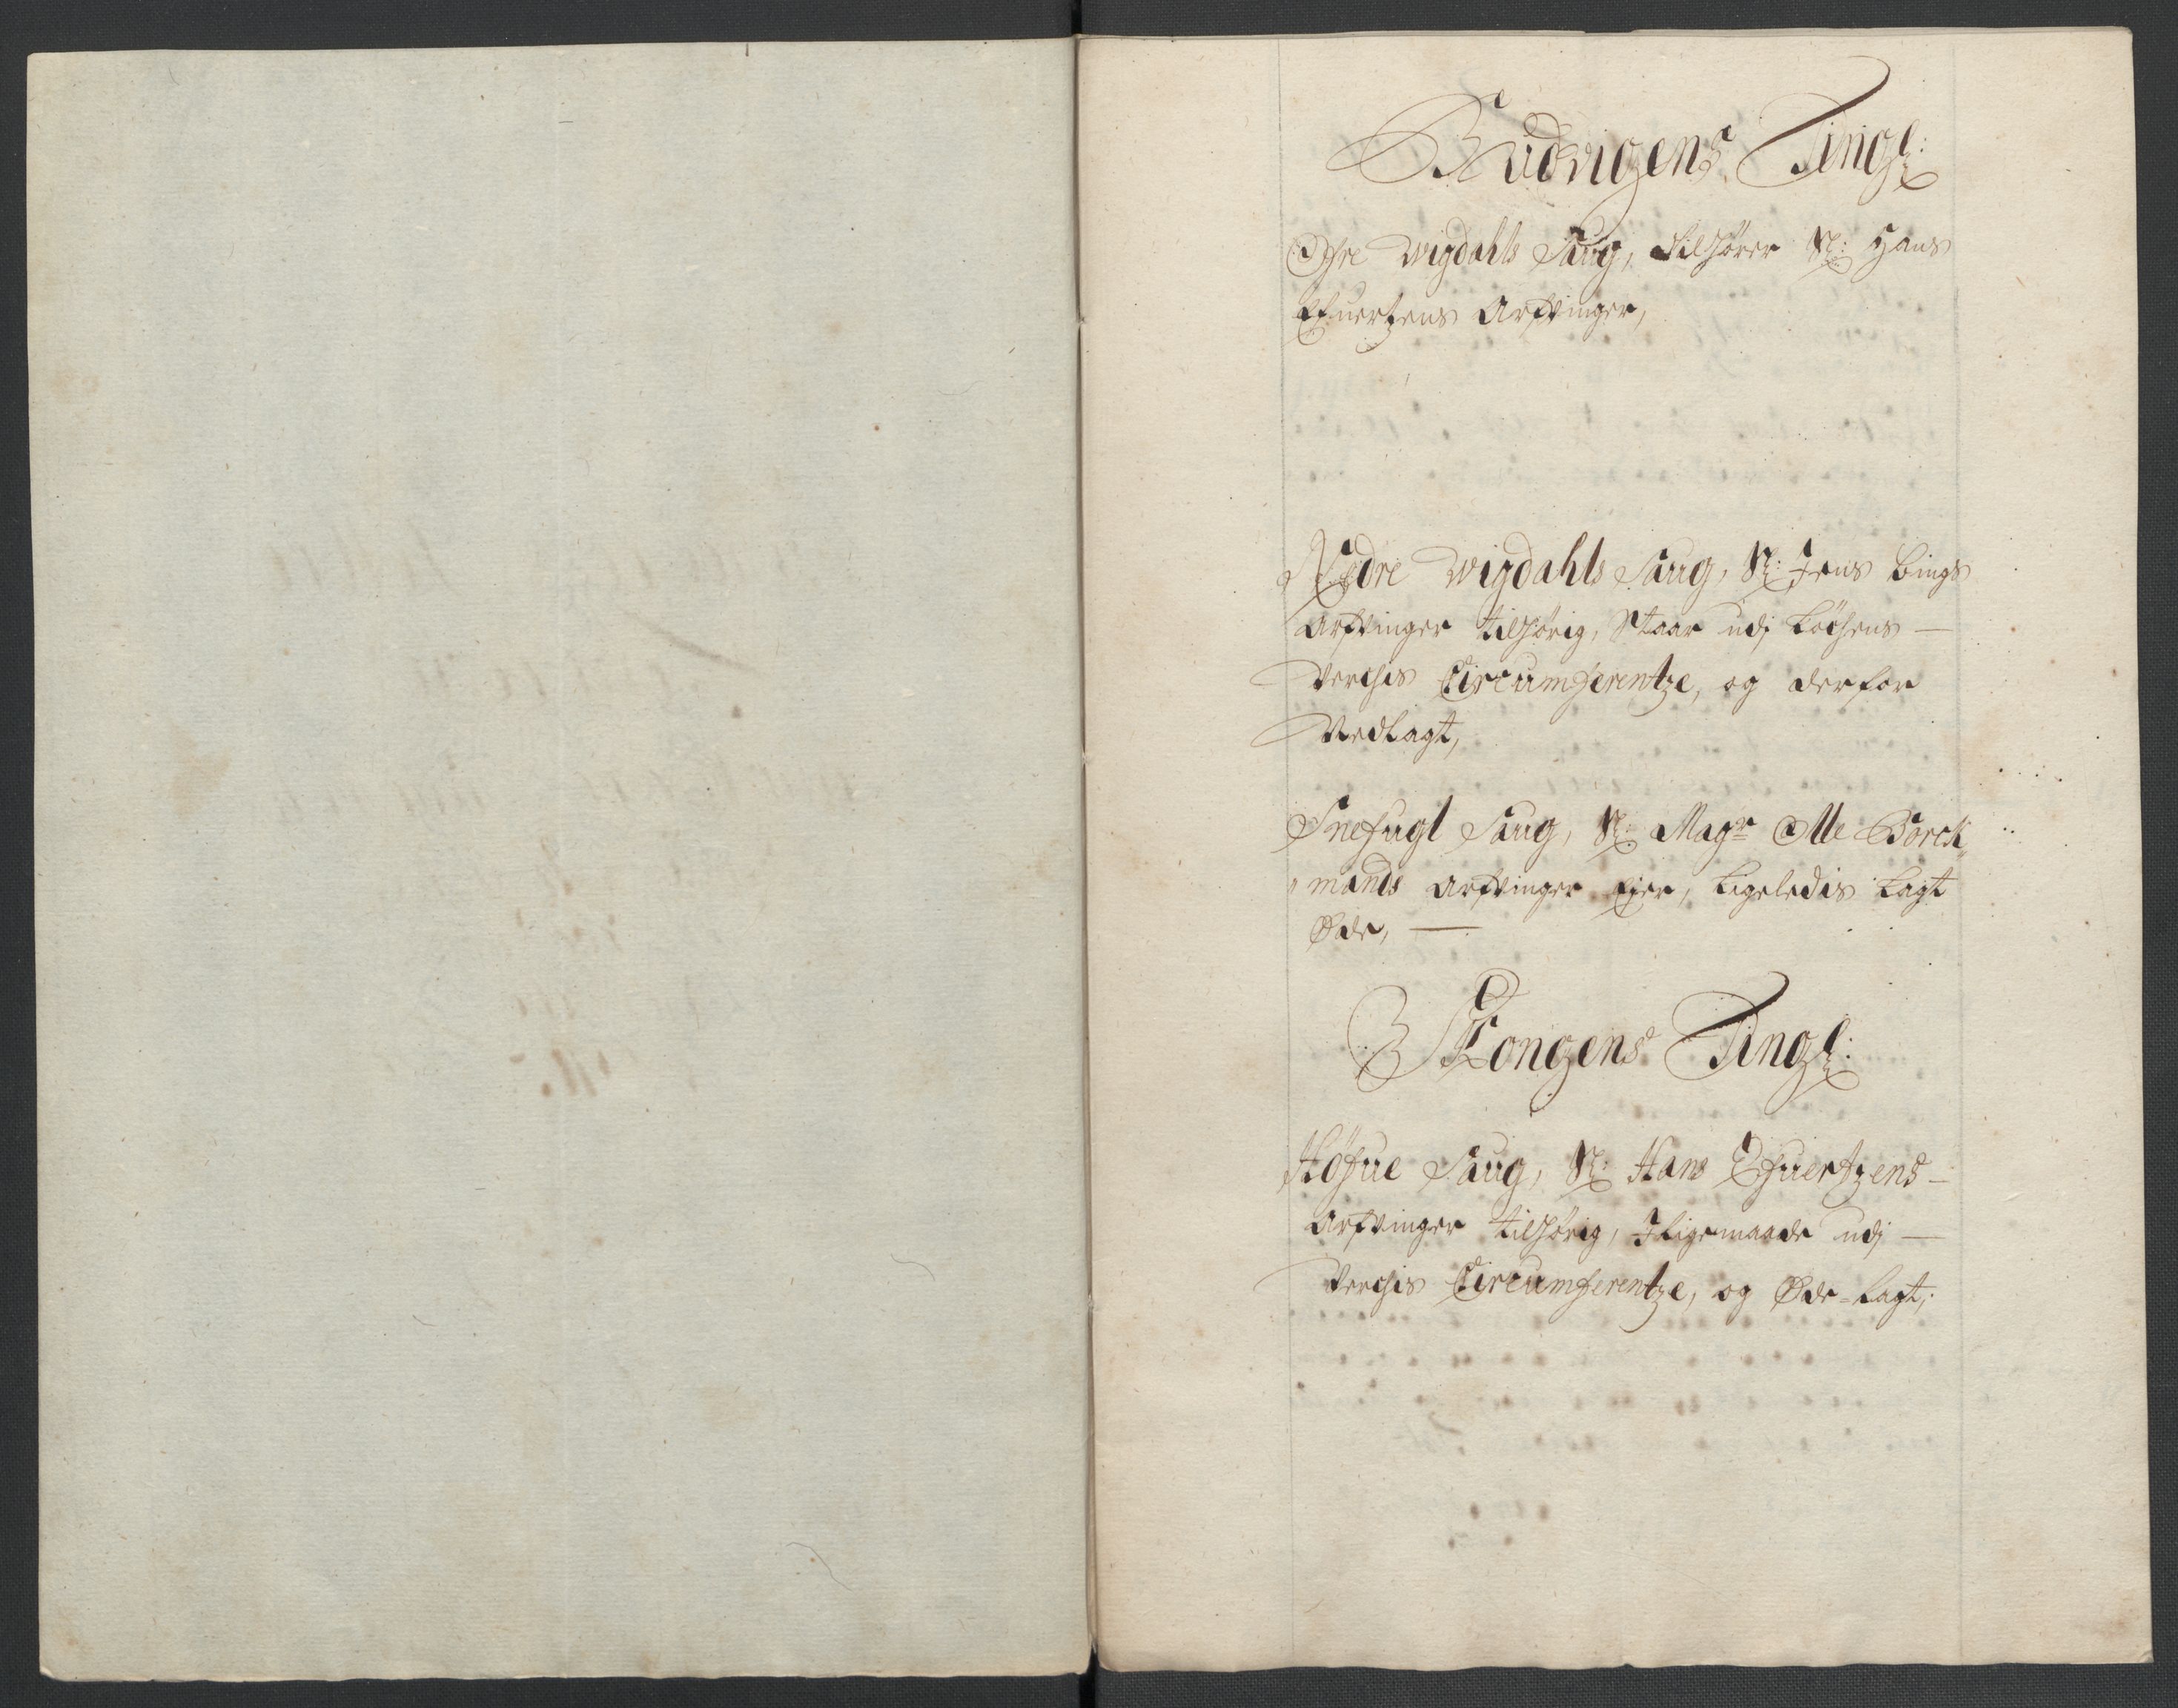 Budvigens Tingl:
Øfre Wigdahls Saug, Tilhører Sl: Hans
Efuertzens Arfvinger,
Nedre Wigdahls Saug, Sl: Jens Bings
Arfvinger tilhørig, Staar udj Løchens
Verchis Circumferentze, og derfor
Nedlagt,
Snefugl Saug, Sl: Magr Olle Borck
mands Arfvinger Ejer, ligeledis lagt
Øde,
Stongens Tingl:
Høfue Saug, Sl: Hans Efuertzens
Arfvinger tilhørig, Jligemaade udj
Verchis Circumferentze, og Øde-lagt,